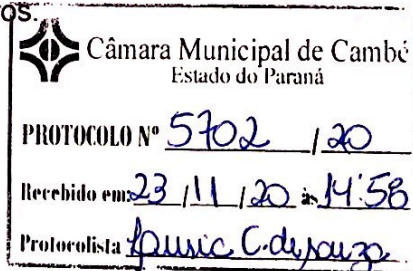 OS.
Câmara Municipal de Cambé
Estado do Paraná
PROTOCOLO Nº 5702 / 20
Recebido em: 23 / 11 / 20 às 14:58
Protocolista C. de Souza